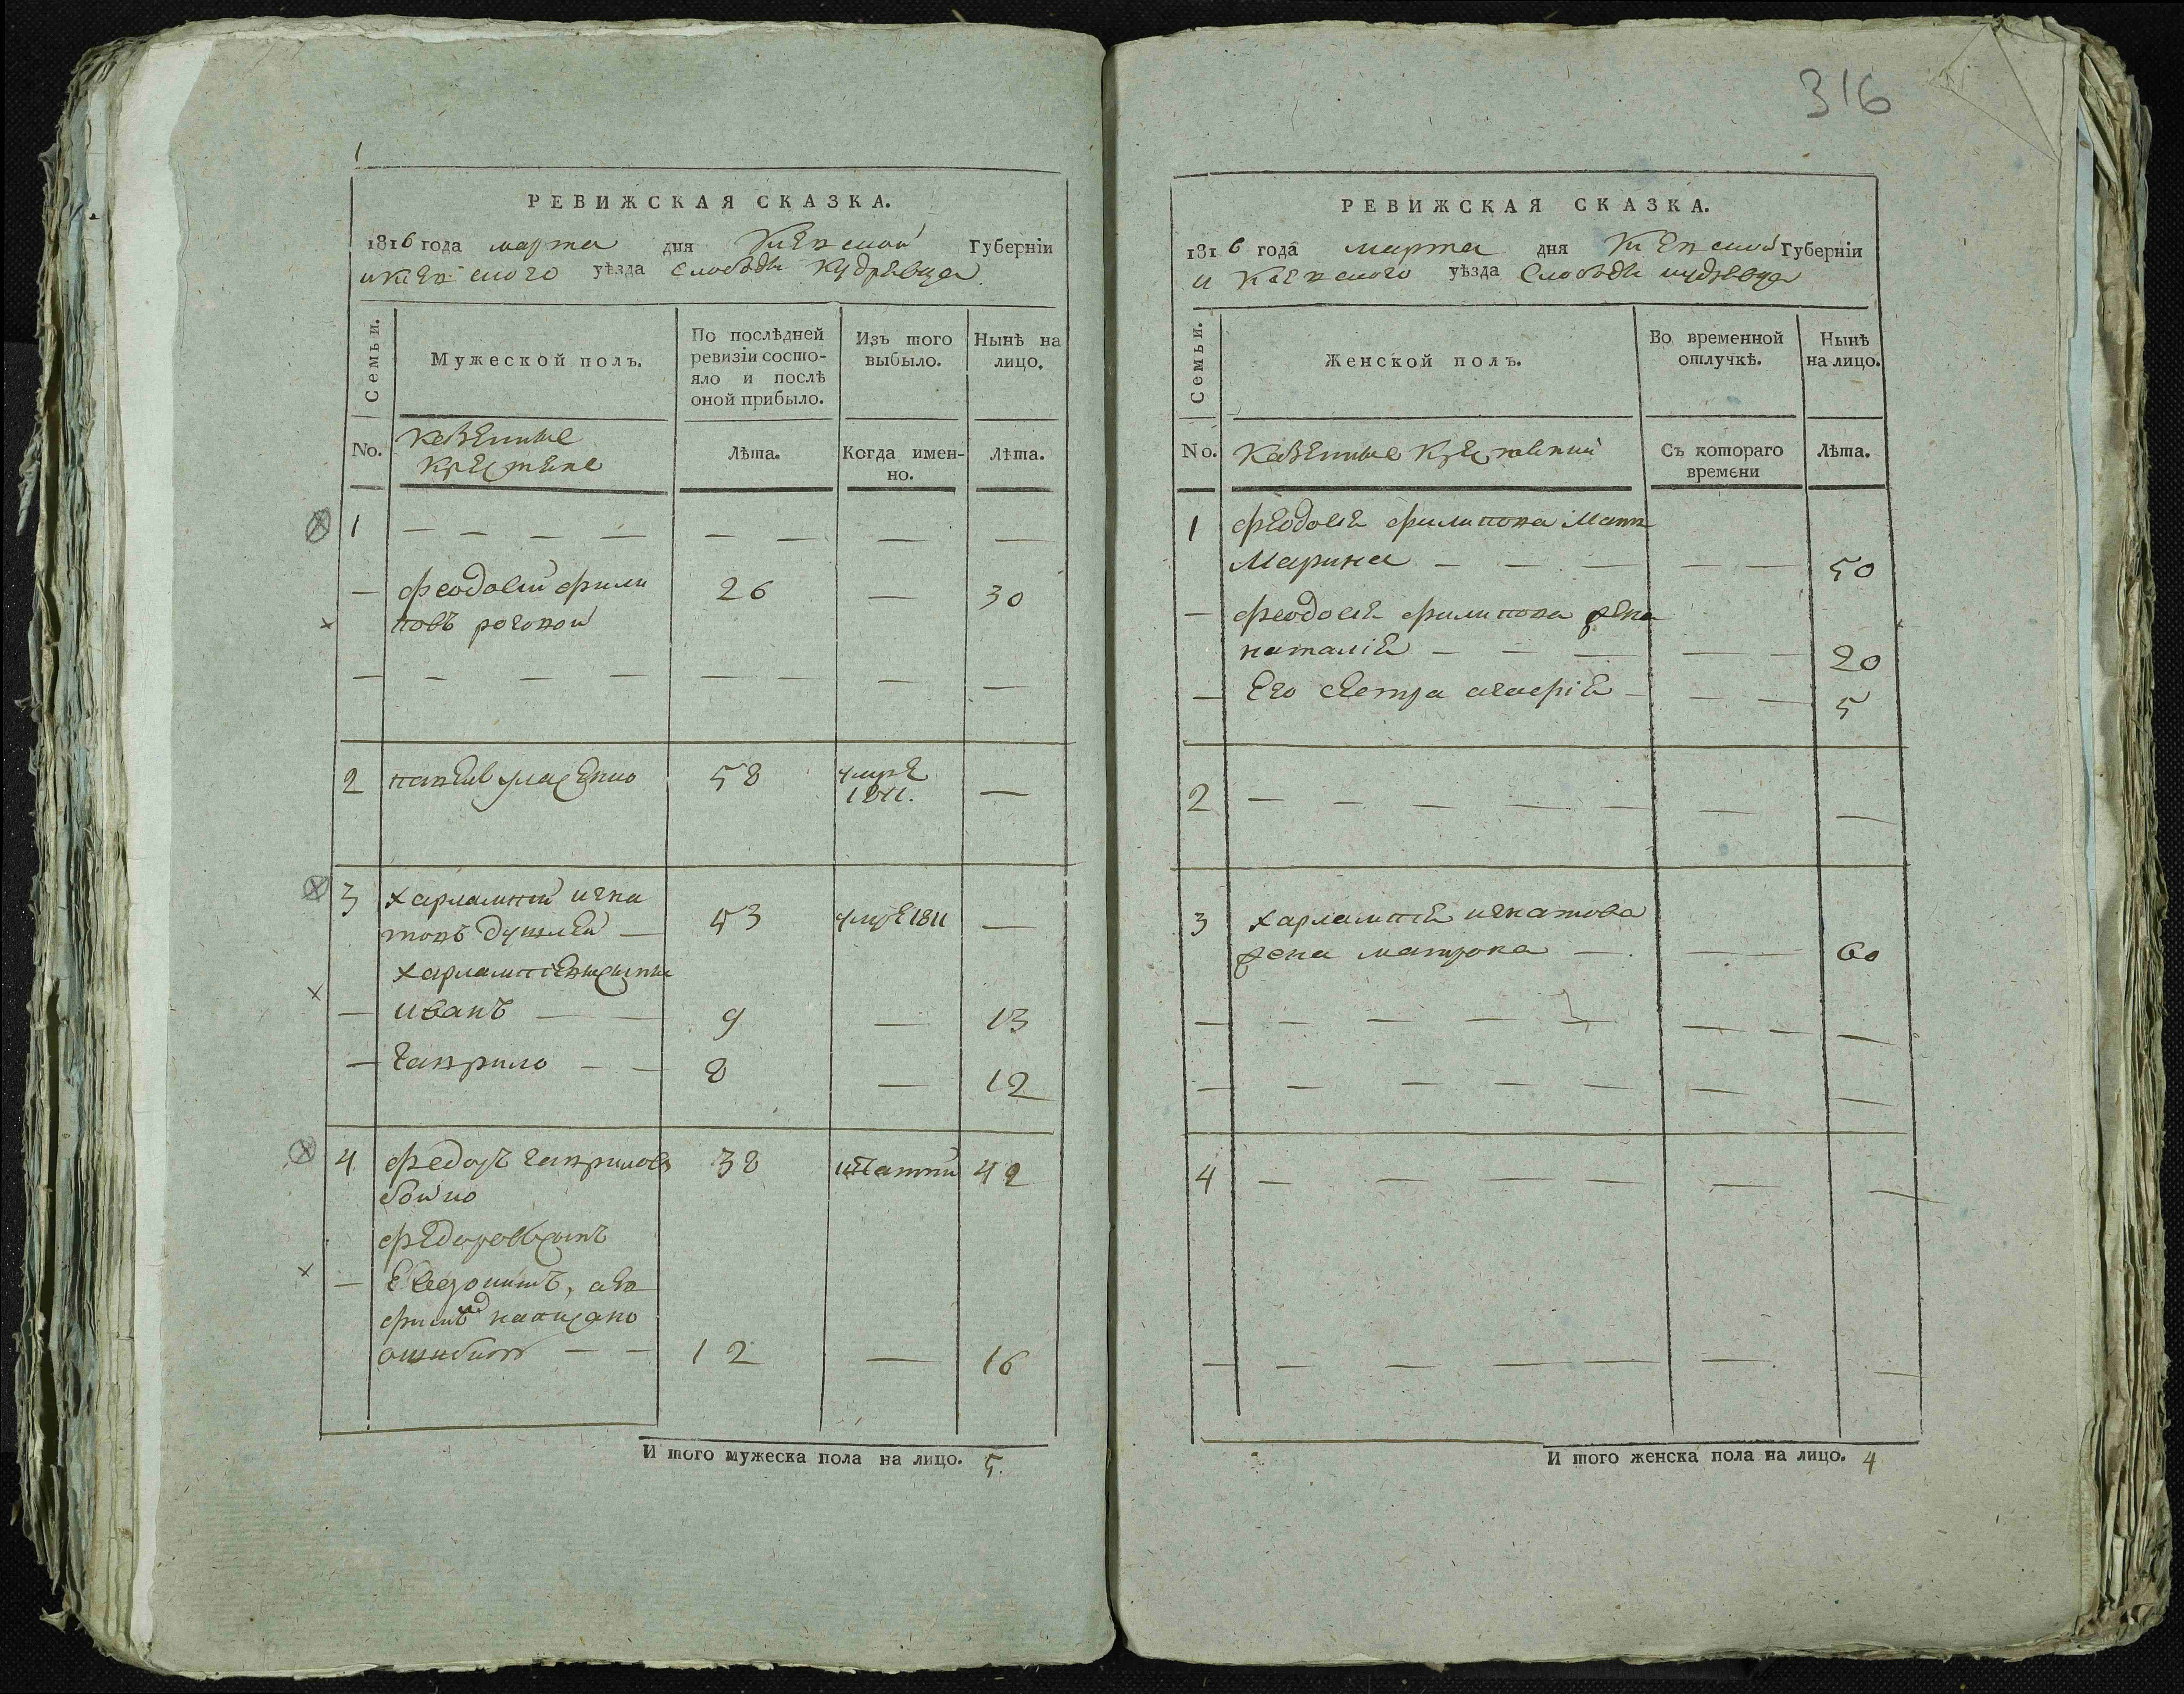 1
РЕВИЖСКАЯ СКАЗКА.
1816 года марта дня Кіевской Губерніи
и Кіевского уѣзда Слободы Кудрявца
Семьи.
Мужеской полъ.
По послѣдней ревизіи состо-
яло и послѣ
оной прибыло.
Изъ того
выбыло.
Нынѣ на
лицо.
No.
Казенные
Крестяне
Лѣта.
Когда имен-
но.
Лѣта.
1 — — — — — — — —
— Феодосий Фили 26 — 30
повъ
— — — — — — — —
2 58 умре
1811. —
3 харлампий игна
товъ 53 умре 1811 —
харлампіевы сыны
— иванъ — — 9 — 13
— гаврило — — 8 — 12
4 Федоръ гавриловъ 38 42
бойко
Федоровъ сынъ
—
написано
ошибкою — — 12 — 16
И того мужеска пола на лицо. 5.
316
РЕВИЖСКАЯ СКАЗКА.
1816 года марта дня Кіевской Губерніи
и Кіевского уѣзда Слободы кудрявца
Семьи.
Женской полъ.
Во временной
отлучкѣ.
Нынѣ
на лицо.
No.
Казенные Крестянки
Съ котораго
времени
Лѣта.
1 Феодосія филипова Мать
Марина — — — — — 50
— Феодосія филипова жена
наталія — — — — — 20
— Его сестра агафія — — — 5
2 — — — — — — —
3 харлампія игнатова
жена матрона — — 60
— — — — — — — —
— — — — — — —
4 — — — — — —
— — — — — — —
И того женска пола на лицо. 4